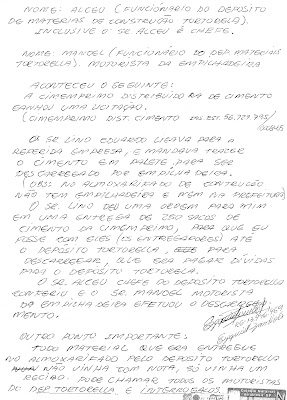 NOME: ALCEU (FUNCIONÁRIO DO DEPOSITO
DE MATERIAS DE CONSTRUÇÃO TORTORELA).
INCLUSIVE O SR ALCEU É CHEFE.
NOME: MANOEL (FUNCIONARIO DO DEP. MATERIAIS
TORTORELLA). MOTORISTA DA EMPILHADEIRA
ACONTECEU O SEGUINTE:
A CIMEMPRIMO DISTRIBUIDORA DE CIMENTO
GANHOU UMA LICITAÇÃO.
(CIMEMPRIMO DIST. CIMENTO
O SR LINO EDUARDO LIGAVA PARA A
REFERIDA EMPRESA, E MANDAVA TRAZER
O CIMENTO EM PALETE, PARA SER
DESCARREGADO POR EMPILHADEIRA.
(OBS: NO ALMOXARIFADO DE CONTRUCÃO
NÃO TEM EMPILHADEIRA E NEM NA PREFEITURA)
O SR LINO DEU UMA ORDEM PARA MIM
EM UMA ENTREGA DE 280 SACOS DE
CIMENTO DA CIMEMPRIMO, PARA QUE EU
FOSSE COM ELES (OS ENTREGADORES) ATE
O DEPOSITO TORTORELLA PARA
DESCARREGAR, QUE ERA PAGAR DIVIDAS
PARA O DEPOSITO TORTORELLA.
O SR. ALCEU CHEFE DO DEPOSITO TORTORELLA
CONFERIU E O SR MANOEL MOTORISTA
DA EMPILHADEIRA EFETUOU O DESCARREGA-
MENTO.
OUTRO PONTO IMPORTANTE:
TODO MATERIAL QUE ERA ENTREGUE
NO ALMOXARIFADO PELO DEPOSITO TORTORELLA
NÃO VINHA COM NOTA, SÓ VINHA UM
RECIBO. PODE CHAMAR TODOS OS MOTORISTAS
DO DEP. TORTORELLA E INTERROGA-LOS.